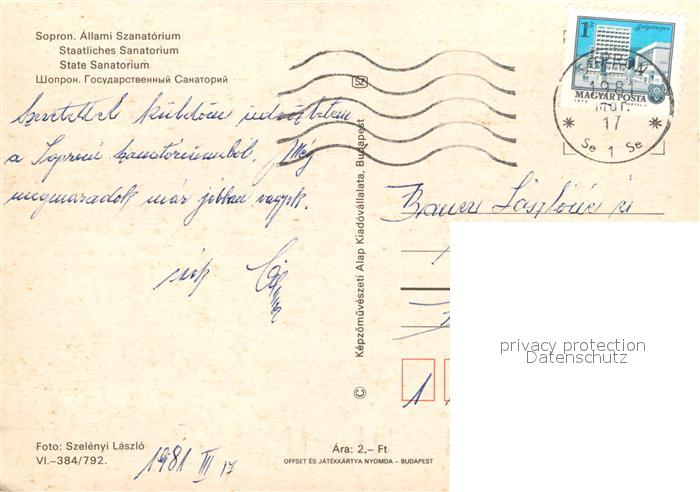 Sopron. Állami Szanatórium
Staatliches Sanatorium
State Sanatorium
Шопрон. Государственный Санаторий
Szeretettel küldöm üdvözletem
a Soproni Szanatóriumból. Még
megmaradok már jobban vagyok.
Foto: Szelényi László
VI.–384/792.
1981 III 17
Ára: 2,– Ft
OFFSET ÉS JÁTÉKKÁRTYA NYOMDA – BUDAPEST
SZ
© Képzőművészeti Alap Kiadóvállalata, Budapest
1 Ft
Salgótarján
MAGYAR POSTA
SOPRON 4
1981
17
Se 1 Se
Lászlóné
1
privacy protection
Datenschutz